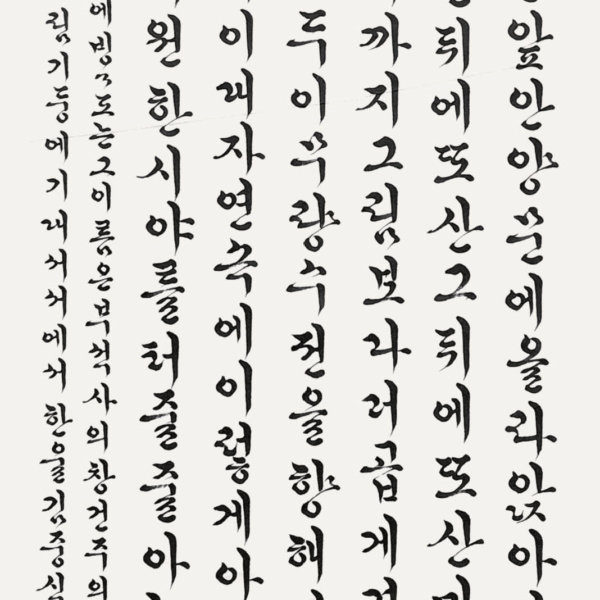 앞안양문에올라앉아
뒤에또산그뒤에또산
까지그림보다더곱게
두이무량수전을향해
이대자연속에이렇게아
원한시야를터줄줄아
에빙〃도는그이름은부석사의창건주의
림기둥에기대서서에서 한울김중